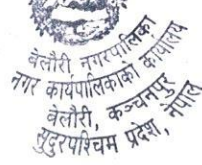 बेलौरी नगरपालिका
नगर कार्यपालिकाको कार्यालय
बेलौरी, कञ्चनपुर
सुदुरपश्चिम प्रदेश, नेपाल